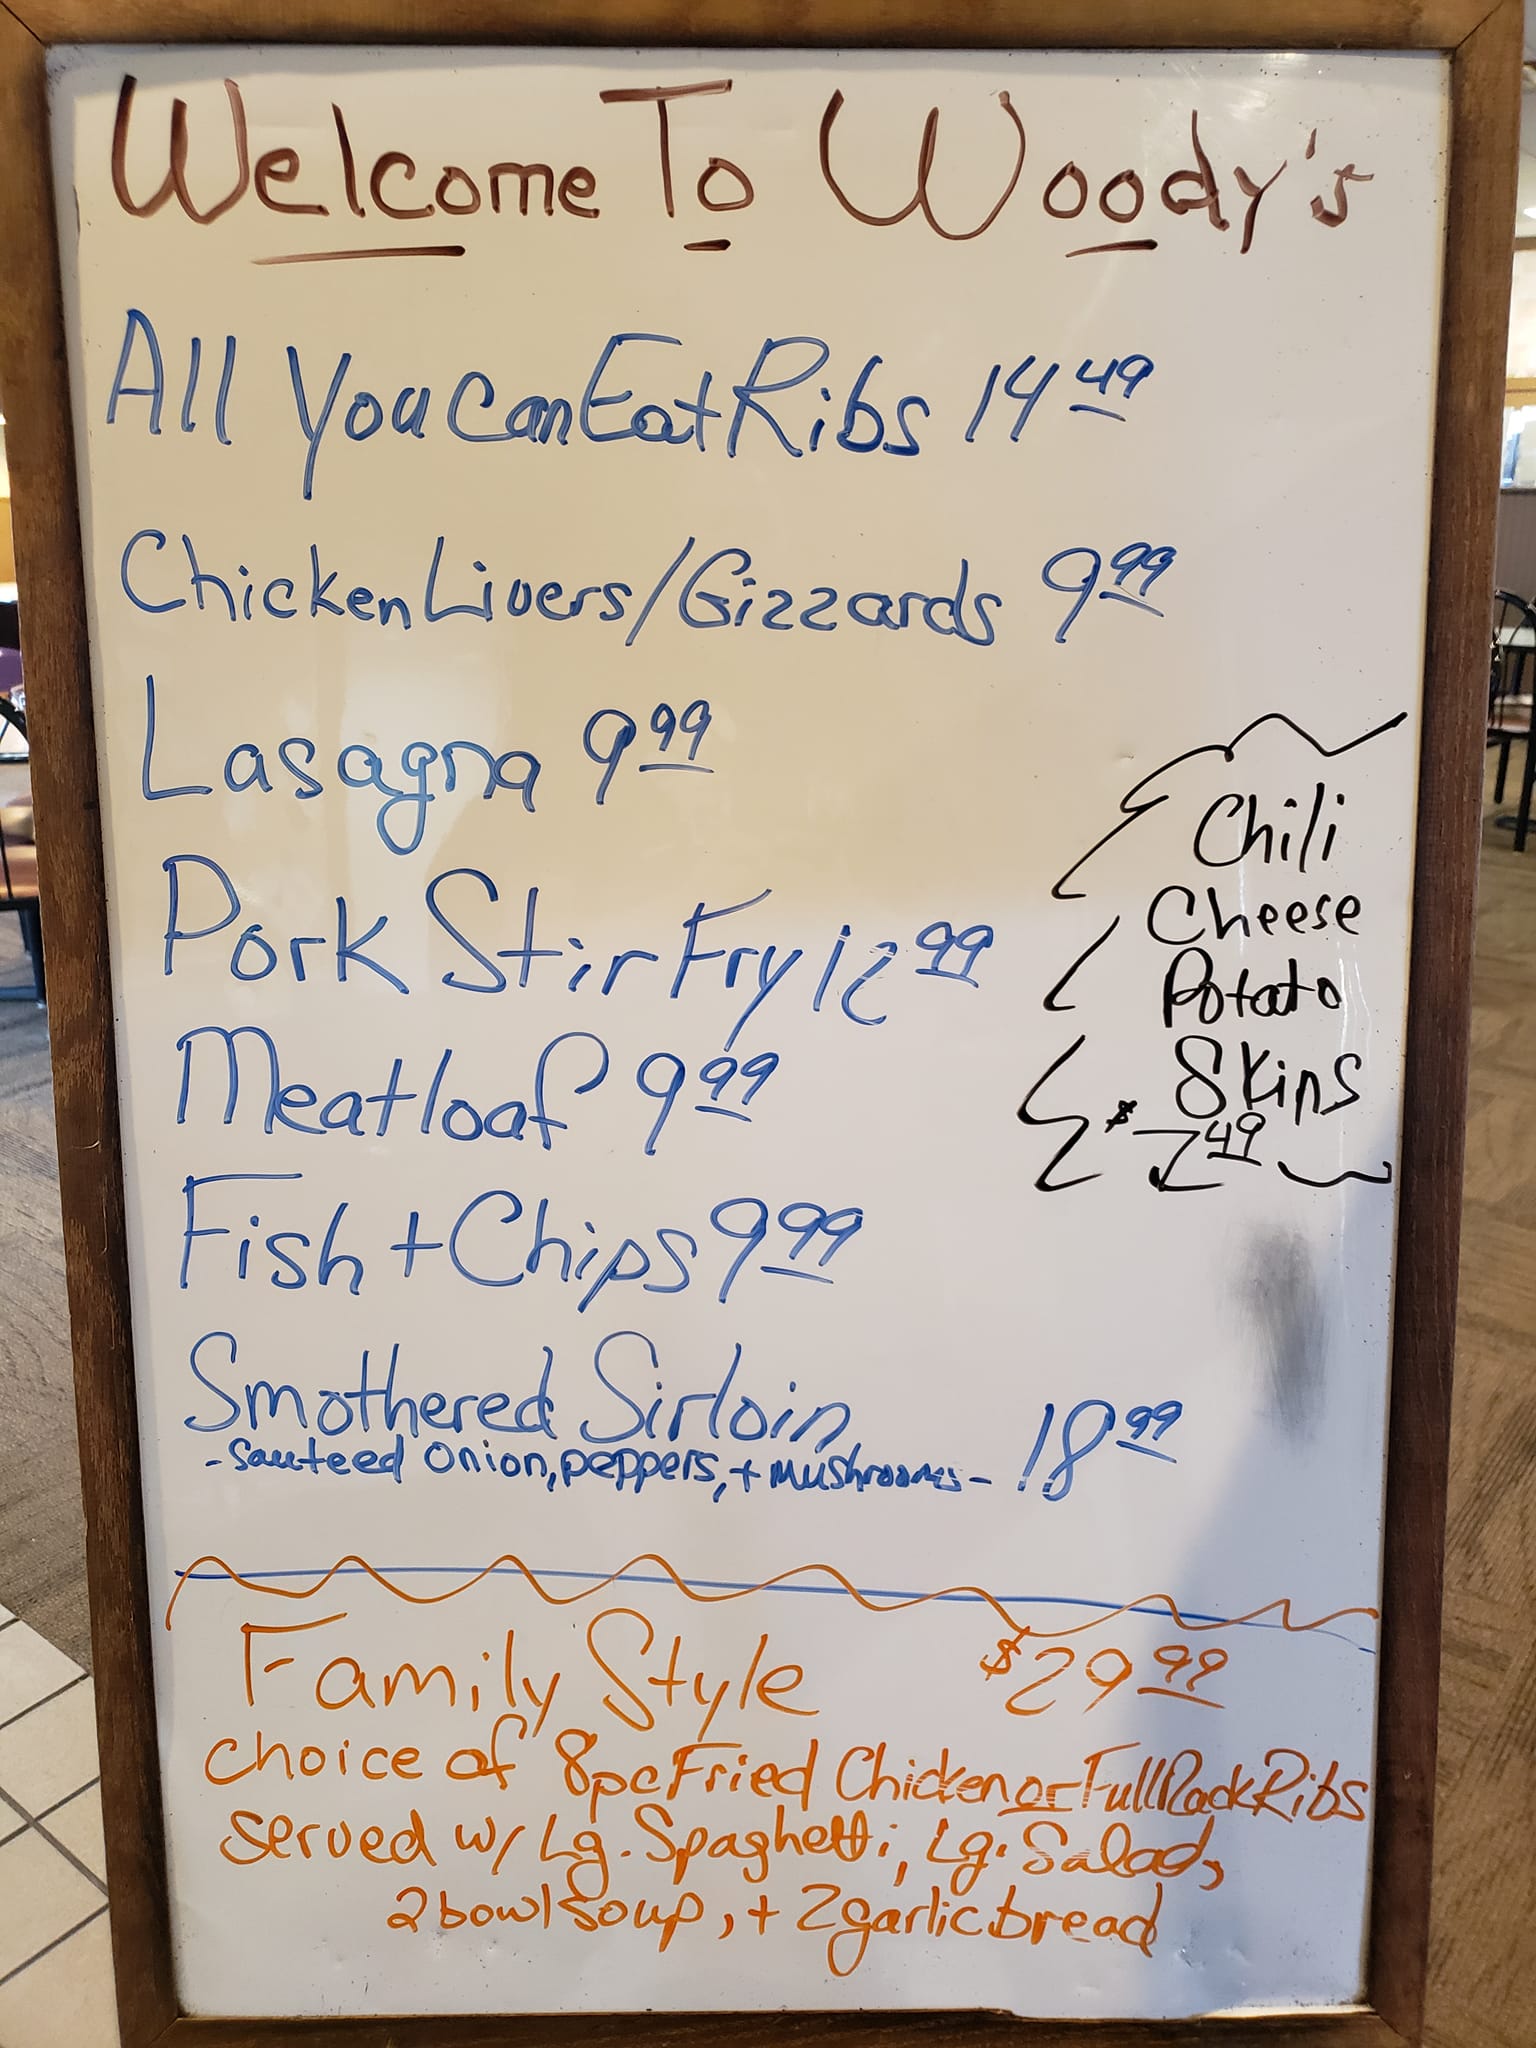 Welcome To Woody's
All You Can Eat Ribs 14 49
Chicken Livers/Gizzards 9 99
Lasagna 9 99
Pork Stir Fry 12 99
Meatloaf 9 99
Fish + Chips 9 99
Smothered Sirloin
- Sauteed onion, peppers, + mushrooms - 18 99
Chili
Cheese
Potato
Skins
$ 7 49
Family Style $29 99
choice of 8pc Fried Chicken or Full Rack Ribs
served w/ Lg. Spaghetti, Lg. Salad,
2 bowl soup, + 2 garlic bread